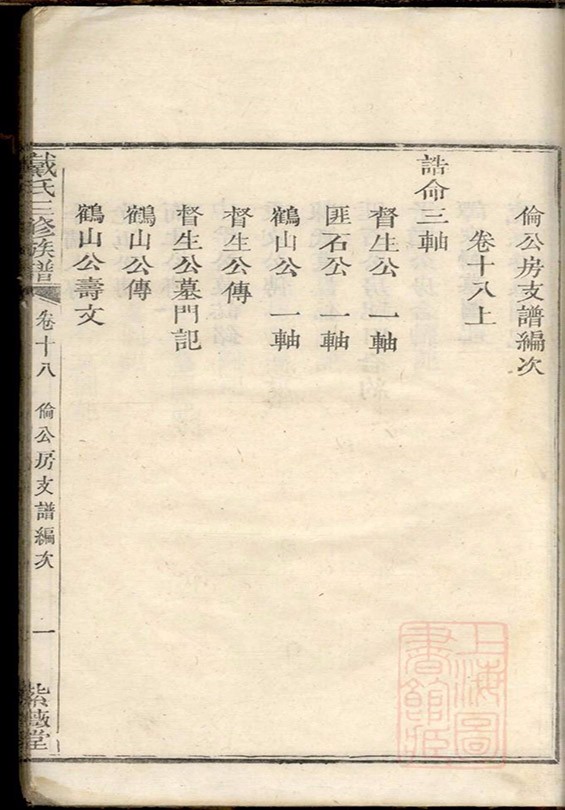 倫公房支譜編次
卷十八上
誥命三軸
督生公 一軸
匪石公 一軸
鶴山公 一軸
督生公傳
督生公墓門記
鶴山公傳
鶴山公壽文
戴氏三修族譜 卷十八 倫公房支譜編次 一 紫薇堂
上海圖書館藏